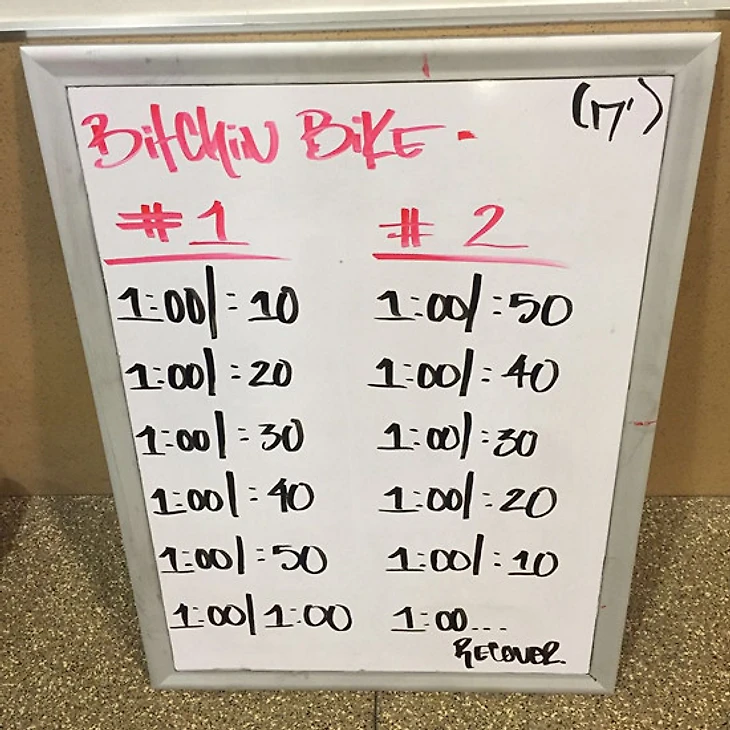 (17')
BitCHiN BiKE -
# 1
1:00/:10
1:00/:20
1:00/:30
1:00/:40
1:00/:50
1:00/1:00
# 2
1:00/:50
1:00/:40
1:00/:30
1:00/:20
1:00/:10
1:00...
RECOVER